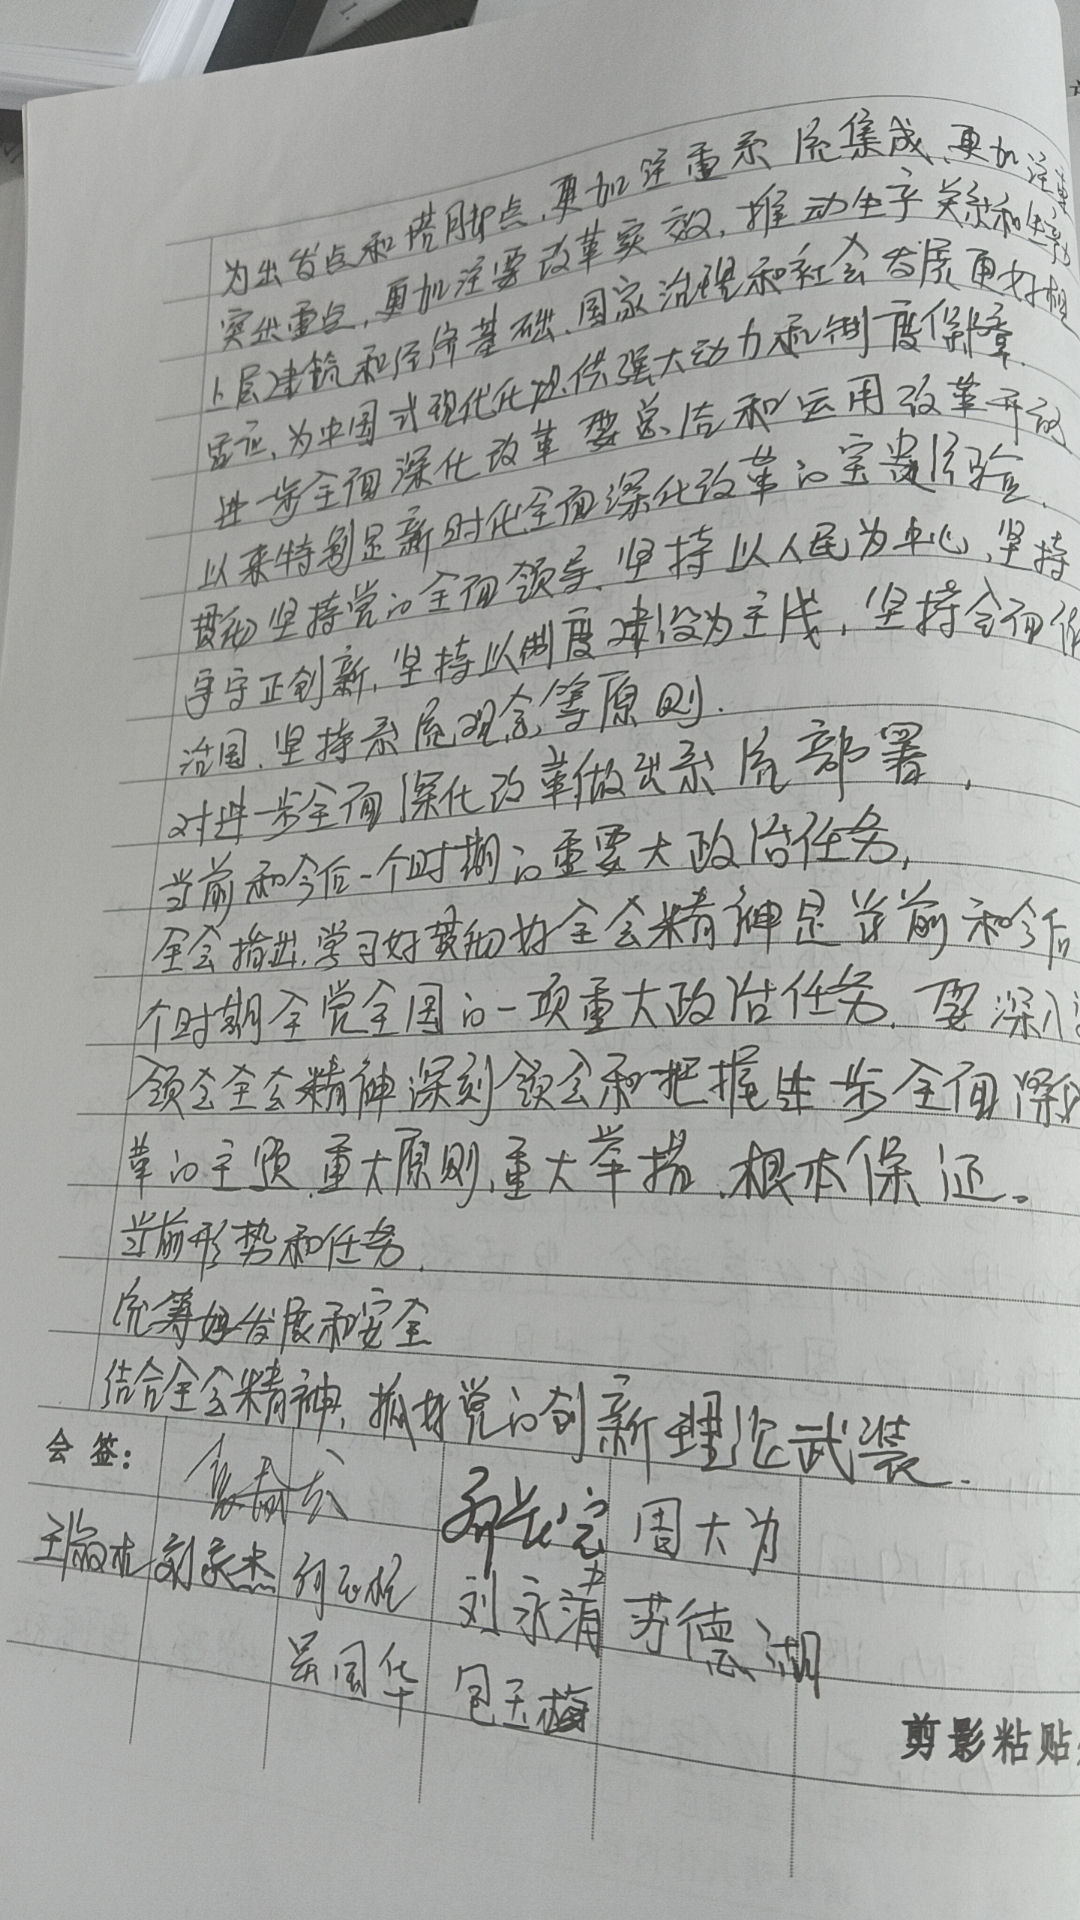 为出发点和落脚点，更加注重系统集成，更加注重
突出重点，更加注重改革实效，推动生产关系和生产
上层建筑和经济基础、国家治理和社会发展更好相
适应，为中国式现代化提供强大动力和制度保障。
进一步全面深化改革要总结和运用改革开放
以来特别是新时代全面深化改革的宝贵经验，
贯彻坚持党的全面领导、坚持以人民为中心、坚持
守守正创新，坚持以制度建设为主线，坚持全面依
治国，坚持系统观念等原则。
对进一步全面深化改革做出系统部署，
当前和今后一个时期的重要大政治任务，
全会指出，学习好贯彻好全会精神是当前和今后
个时期全党全国的一项重大政治任务，要深入
领会全会精神深刻领会和把握进步全面深化
革的主题、重大原则、重大举措、根本保证。
当前形势和任务，
统筹好发展和安全
结合全会精神，抓好党的创新理论武装．
会签：
周大为
刘永清 苏德湖
吴国华 包玉梅
剪影粘贴